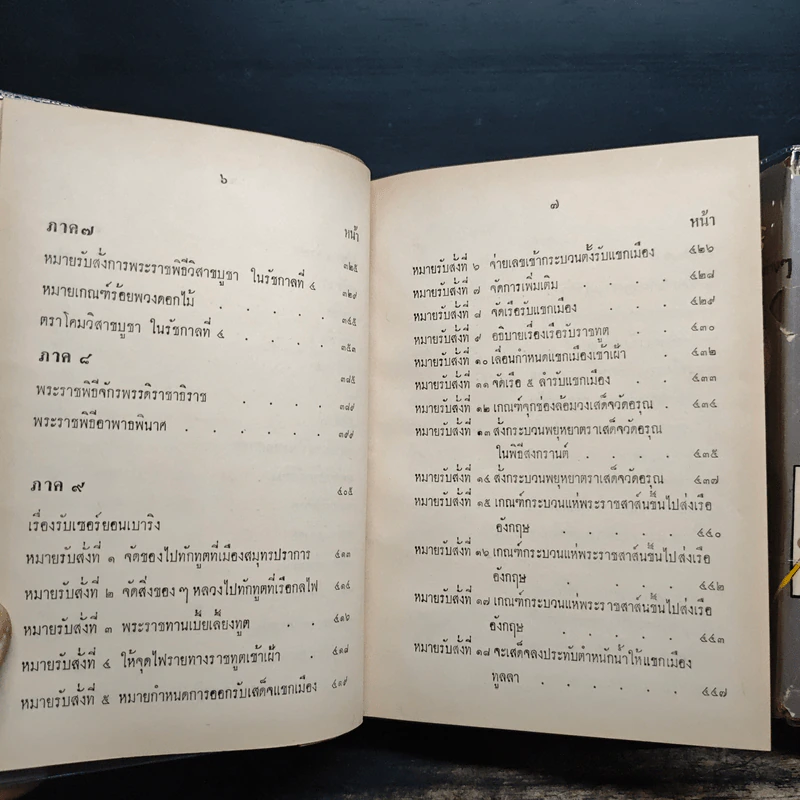 ๖
ภาค๗
หน้า
๓๒๕
หมายรับสั่งการพระราชพิธีวิสาขบูชา ในรัชกาลที่ ๔
๓๒๙
หมายเกณฑ์ร้อยพวงดอกไม้ . . . . .
๓๔๕
ตราโคมวิสาขบูชา ในรัชกาลที่ ๔ . . . .
๓๕๓
ภาค ๘
๓๘๕
พระราชพิธีจักรพรรดิราชาธิราช . . . .
๓๘๙
พระราชพิธีอาพาธพินาศ . . . . .
๓๙๙
ภาค ๙
๔๐๕
เรื่องรับเซอร์ยอนเบาริง
หมายรับสั่งที่ ๑ จัดของไปทักทูตที่เมืองสมุทรปราการ ๔๑๓
หมายรับสั่งที่ ๒ จัดสิ่งของๆ หลวงไปทักทูตที่เรือกลไฟ ๔๑๔
หมายรับสั่งที่ ๓ พระราชทานเบี้ยเลี้ยงทูต . . ๔๑๖
หมายรับสั่งที่ ๔ ให้จุดไฟรายทางราชทูตเข้าเฝ้า . ๔๑๘
หมายรับสั่งที่ ๕ หมายกำหนดการออกรับเสด็จแขกเมือง ๔๑๙
๗
หน้า
หมายรับสั่งที่ ๖ จ่ายเลขเข้ากระบวนตั้งรับแขกเมือง ๔๒๖
หมายรับสั่งที่ ๗ จัดการเพิ่มเติม . . . . ๔๒๘
หมายรับสั่งที่ ๘ จัดเรือรับแขกเมือง . . . ๔๒๙
หมายรับสั่งที่ ๙ อธิบายเรื่องเรือรับราชทูต . . ๔๓๐
หมายรับสั่งที่ ๑๐ เลื่อนกำหนดแขกเมืองเข้าเฝ้า . ๔๓๒
หมายรับสั่งที่ ๑๑ จัดเรือ ๕ ลำรับแขกเมือง . . ๔๓๓
หมายรับสั่งที่ ๑๒ เกณฑ์จุกช่องล้อมวงเสด็จวัดอรุณ . ๔๓๔
หมายรับสั่งที่ ๑๓ สั่งกระบวนพยุหยาตราเสด็จวัดอรุณ
ในพิธีสงกรานต์ . . . . ๔๓๕
หมายรับสั่งที่ ๑๔ สั่งกระบวนพยุหยาตราเสด็จวัดอรุณ ๔๓๗
หมายรับสั่งที่ ๑๕ เกณฑ์กระบวนแห่พระราชสาส์นขึ้นไปส่งเรือ
อังกฤษ . . . . . ๔๔๐
หมายรับสั่งที่ ๑๖ เกณฑ์กระบวนแห่พระราชสาส์นขึ้นไปส่งเรือ
อังกฤษ . . . . . ๔๔๒
หมายรับสั่งที่ ๑๗ เกณฑ์กระบวนแห่พระราชสาส์นขึ้นไปส่งเรือ
อังกฤษ . . . . . ๔๔๓
หมายรับสั่งที่ ๑๘ จะเสด็จลงประทับตำหนักน้ำให้แขกเมือง
ทูลลา . . . . . . ๔๔๗